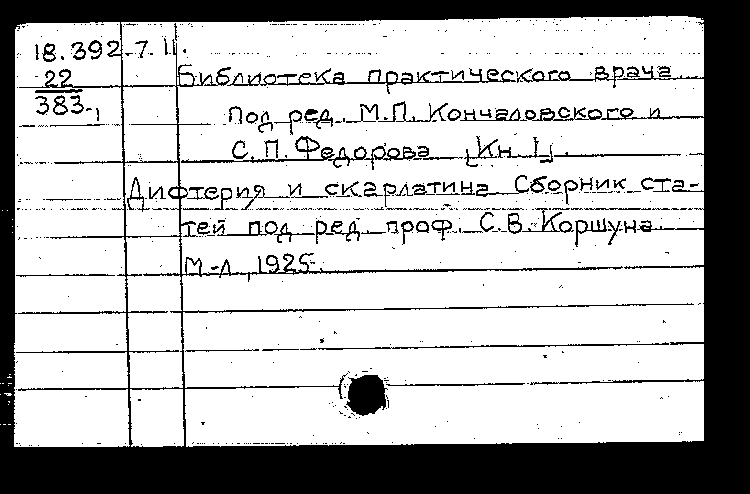 18.392.7.II.
22
383-1
Библиотека практического врача
под ред. М.П. Кончаловского и
С.П. Федорова [Кн. I].
Дифтерия и скарлатина Сборник ста-
тей под ред. проф. С.В. Коршуна
М.-Л., 1925.